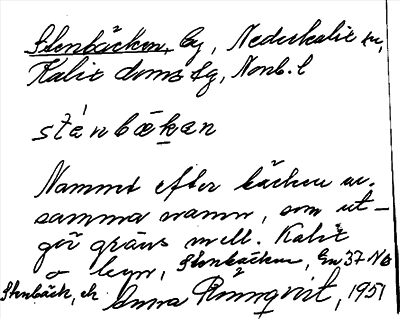 Stenbäcken, by, Nederkalix sn,
Kalix doms lg, Nonb. l
sténbäkan
Namnet efter bäcken av
samma namn, som ut-
gör gräns mell. Kalix
o byn, Stenbäcken, 37 No
Stenbäck, Anna Rönnqvist, 1951